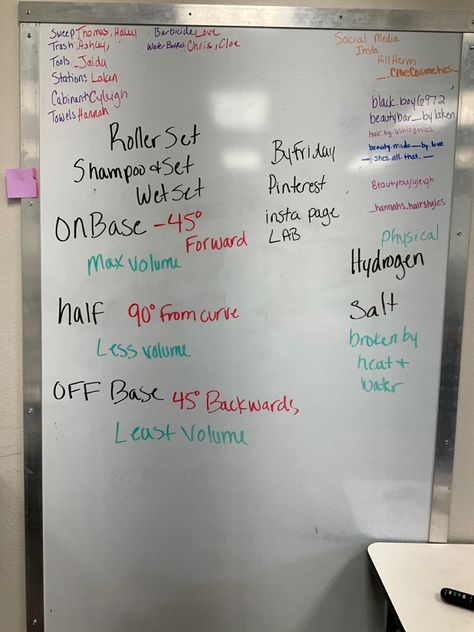 Sweep Thomas, Haley
Trash Ashley,
Tools - Jaida
Stations Laken
Cabinant Cyleigh
Towels Hannah
Barbicide Love
Water Bottles Chris, Cloe
Social Media
Insta
HillHarm
_.CloeCosmetics._
black.boy6972
beautybar__by laken
hair.by.
beauty.made__by.love
_ shes.all.that._
Beautybycyleigh
_hannahs.hairstyles
Roller Set
Shampoo & Set
Wet Set
By Friday
Pinterest
insta page
LAB
ON Base - 45°
Forward
Max Volume
half 90° From curve
Less volume
OFF Base 45° Backwards
Least Volume
physical
Hydrogen
Salt
broken by
heat +
water